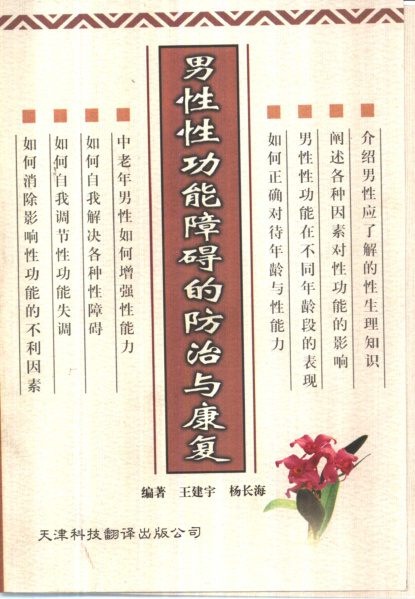 男性性功能障碍的防治与康复
介绍男性应了解的性生理知识
阐述各种因素对性功能的影响
男性性功能在不同年龄段的表现
如何正确对待年龄与性能力
中老年男性如何增强性能力
如何自我解决各种性障碍
如何自我调节性功能失调
如何消除影响性功能的不利因素
编著 王建宇 杨长海
天津科技翻译出版公司